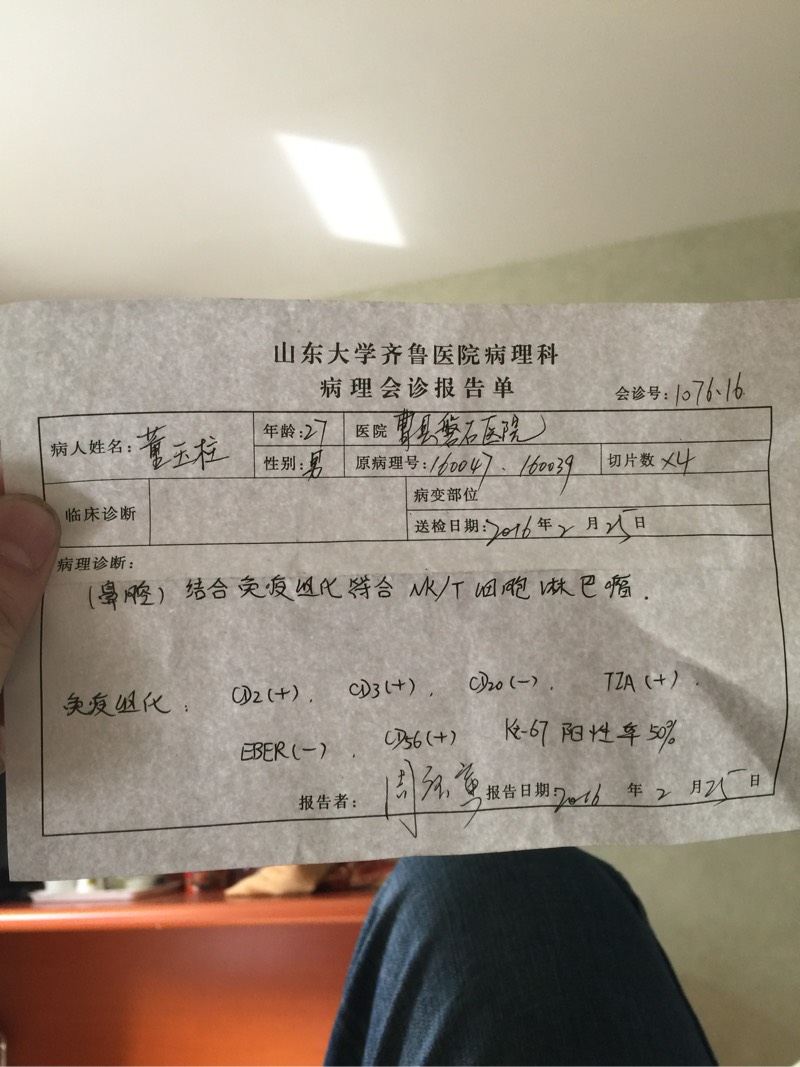 山东大学齐鲁医院病理科
病理会诊报告单
会诊号:1076.16
病人姓名:董玉柱 年龄:27 医院 曹县磐石医院
性别:男 原病理号:160047、160039 切片数 x4
临床诊断 病变部位
送检日期:2016年2月25日
病理诊断:
(鼻腔) 结合免疫组化符合 NK/T 细胞淋巴瘤.
免疫组化: CD2(+). CD3(+). CD20(-). TIA(+).
EBER(-). CD56(+) Ki-67 阳性率50%
报告者: 报告日期:2016年2月25日